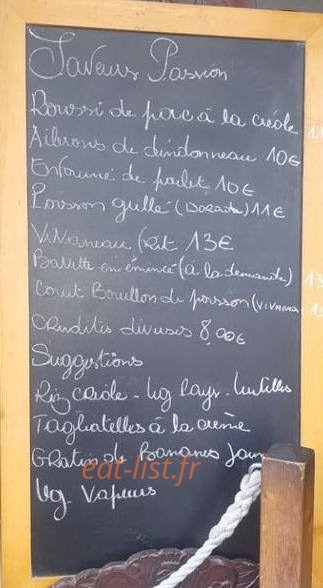 Saveurs Passion
Roussi de porc à la créole
Ailerons de dindonneau 10€
Enfoumé de poulet 10€
Poisson grillé (Dorade) 11€
Vivaneau frit 13€
Bavette ou émincé (à la demande) 13
Court Bouillon de poisson (vivaneau
Crudités diverses 8,00€
Suggestions
Riz créole - lég Pays - lentilles
Tagliatelles à la crème
Gratin de Bananes Jaun
lég. Vapeurs
eat-list.fr